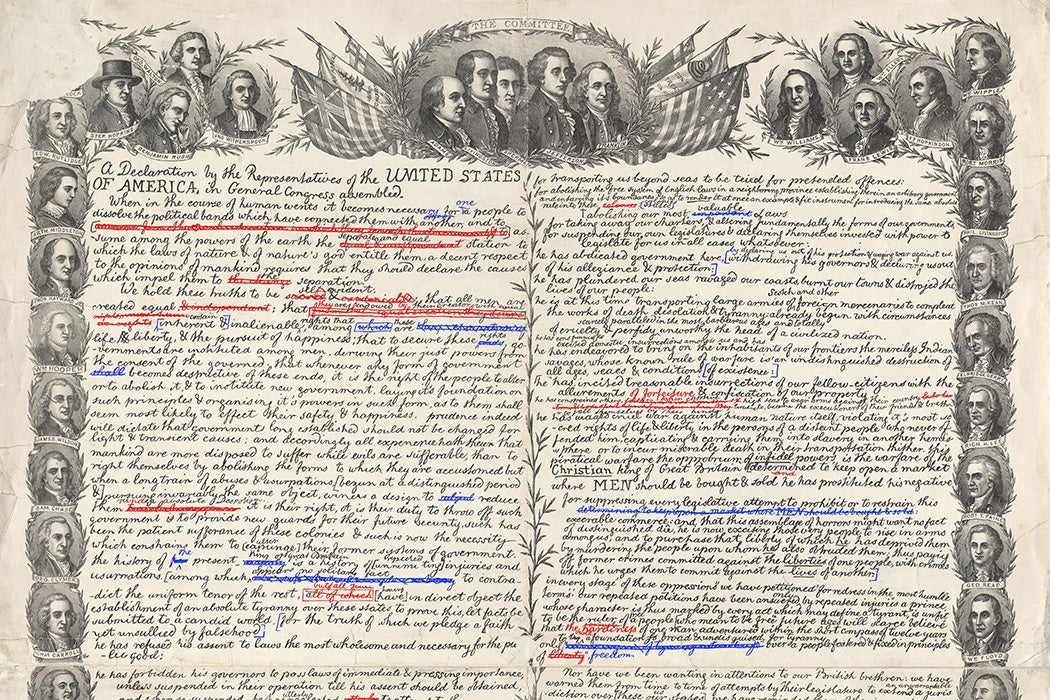 THE COMMITTEE
STEP. HOPKINS
BENJAMIN RUSH
WITHERSPOON
FRANKLIN
WM WILLIAMS
FRANS LEWIS
F. HOPKINSON
WM WHIPPLE
EDW. RUTLEDGE
ARTH. MIDDLETON
THOS HAYWARD
WM HOOPER
JAMES WILSON
SAML CHASE
GEO. CLYMER
CHAS CARROLL
ROBT MORRIS
PHIL. LIVINGSTON
THOS McKEAN
RICH. H. LEE
ROBT T. PAINE
GEO. READ
WM FLOYD
A Declaration by the Representatives of the UNITED STATES
OF AMERICA, in General Congress assembled.
When in the course of human events it becomes necessary for one a people to
dissolve the political bands which have connected them with another, and to as-
sume among the powers of the earth the separate and equal station to
which the laws of nature & of nature's god entitle them, a decent respect
to the opinions of mankind requires that they should declare the causes
which impel them to the separation.
We hold these truths to be self evident; that all men are
created equal & independent; that they are endowed by their creator with
certain rights [inherent &] inalienable; among which these are
life, liberty, & the pursuit of happiness; that to secure these rights, go-
vernments are instituted among men, deriving their just powers from
the consent of the governed; that whenever any form of government
shall becomes destructive of these ends, it is the right of the people to alter
or to abolish it, & to institute new government, laying its foundation on
such principles & organising it's powers in such form, as to them shall
seem most likely to effect their safety & happiness. prudence indeed
will dictate that governments long established should not be changed for
light & transient causes: and accordingly all experience hath shewn that
mankind are more disposed to suffer while evils are sufferable, than to
right themselves by abolishing the forms to which they are accustomed but
when a long train of abuses & usurpations [begun at a distinguished period
& pursuing invariably the same object, evinces a design to reduce
them under absolute Despotism it is their right, it is their duty to throw off such
government & to provide new guards for their future security, such has
been the patient sufferance of these colonies & such is now the necessity
which constrains them to alter [expunge] their former systems of government.
the history of the present king of Great Britain is a history of [unremitting] injuries and
usurpations, [among which, appears no solitary fact to contra-
dict the uniform tenor of the rest, [all of which] have in direct object the
establishment of an absolute tyranny over these states, to prove this, let facts be
submitted to a candid world. [for the truth of which we pledge a faith
yet unsullied by falsehood]
he has refused his assent to laws the most wholesome and necessary for the pu-
-blic good:
he has forbidden his governors to pass laws of immediate & pressing importance,
unless suspended in their operation till his assent should be obtained,
for transporting us beyond seas to be tried for pretended offences:
for abolishing the free system of English laws in a neighboring province establishing therein an arbitrary government
and enlarging it's boundaries so as to render it at once an example & fit instrument for introducing the same absolute
rule into these colonies states
abolishing our most valuable important laws
for taking away our charters, & altering fundamentally the forms of our governments
for suspending our own legislatures & declaring themselves invested with power to
legislate for us in all cases whatsoever:
he has abdicated government here, [withdrawing his governors & declaring us out
by declaring us out of his protection & waging war against us.
of his allegiance & protection:]
he has plundered our seas ravaged our coasts burnt our towns & distroyed the
lives of our people:
he is at this time transporting large armies of foreign mercenaries to compleat
the works of death, desolation & tyranny already begun with circumstances
scarcely paralleled in the most barbarous ages and totally
of cruelty & perfidy unworthy the head of a civilized nation.
excited domestic insurrections amongst us and has
he has endeavored to bring on the inhabitants of our frontiers the merciless Indian
savages, whose known rule of warfare is an undistinguished destruction of
all ages, sexes & conditions [of existence:]
he has incited treasonable insurrections of our fellow-citizens with the
allurements of forfeiture & confiscation of our property
he has waged cruel war against human nature itself, violating it's most sa-
-cred rights of life & liberty in the persons of a distant people who never of-
fended him, captivating & carrying them into slavery in another hemis-
sphere, or to incur miserable death in their transportation thither. this
piratical warfare, the opprobrium of infidel powers, is the warfare of the
Christian king of Great Britain [determined to keep open a market
where MEN should be bought & sold he has prostituted his negative
for suppressing every legislative attempt to prohibit or to restrain this
determining to keep open a market where MEN should be bought & sold:
execrable commerce: and that this assemblage of horrors might want no fact
of distinguished die, he is now exciting those very people to rise in arms
among us, and to purchase that liberty of which he has deprived them,
by murdering the people upon whom he also obtruded them; thus paying
off former crimes committed against the liberties of one people, with crimes
which he urges them to commit against the lives of another.]
in every stage of these oppressions we have petitioned for redress in the most humble
terms; our repeated petitions have been answered by repeated injuries a prince
whose character is thus marked by every act which may define a tyrant, is unfit
to be the ruler of a people who mean to be free future ages will scarce believe
that the hardiness of one man adventured within the short compass of twelve years
only over a people fostered & fixed in principles
of liberty freedom.
Nor have we been wanting in attentions to our British brethren. we have
warned them from time to time of attempts by their legislature to extend a juris-
diction over these